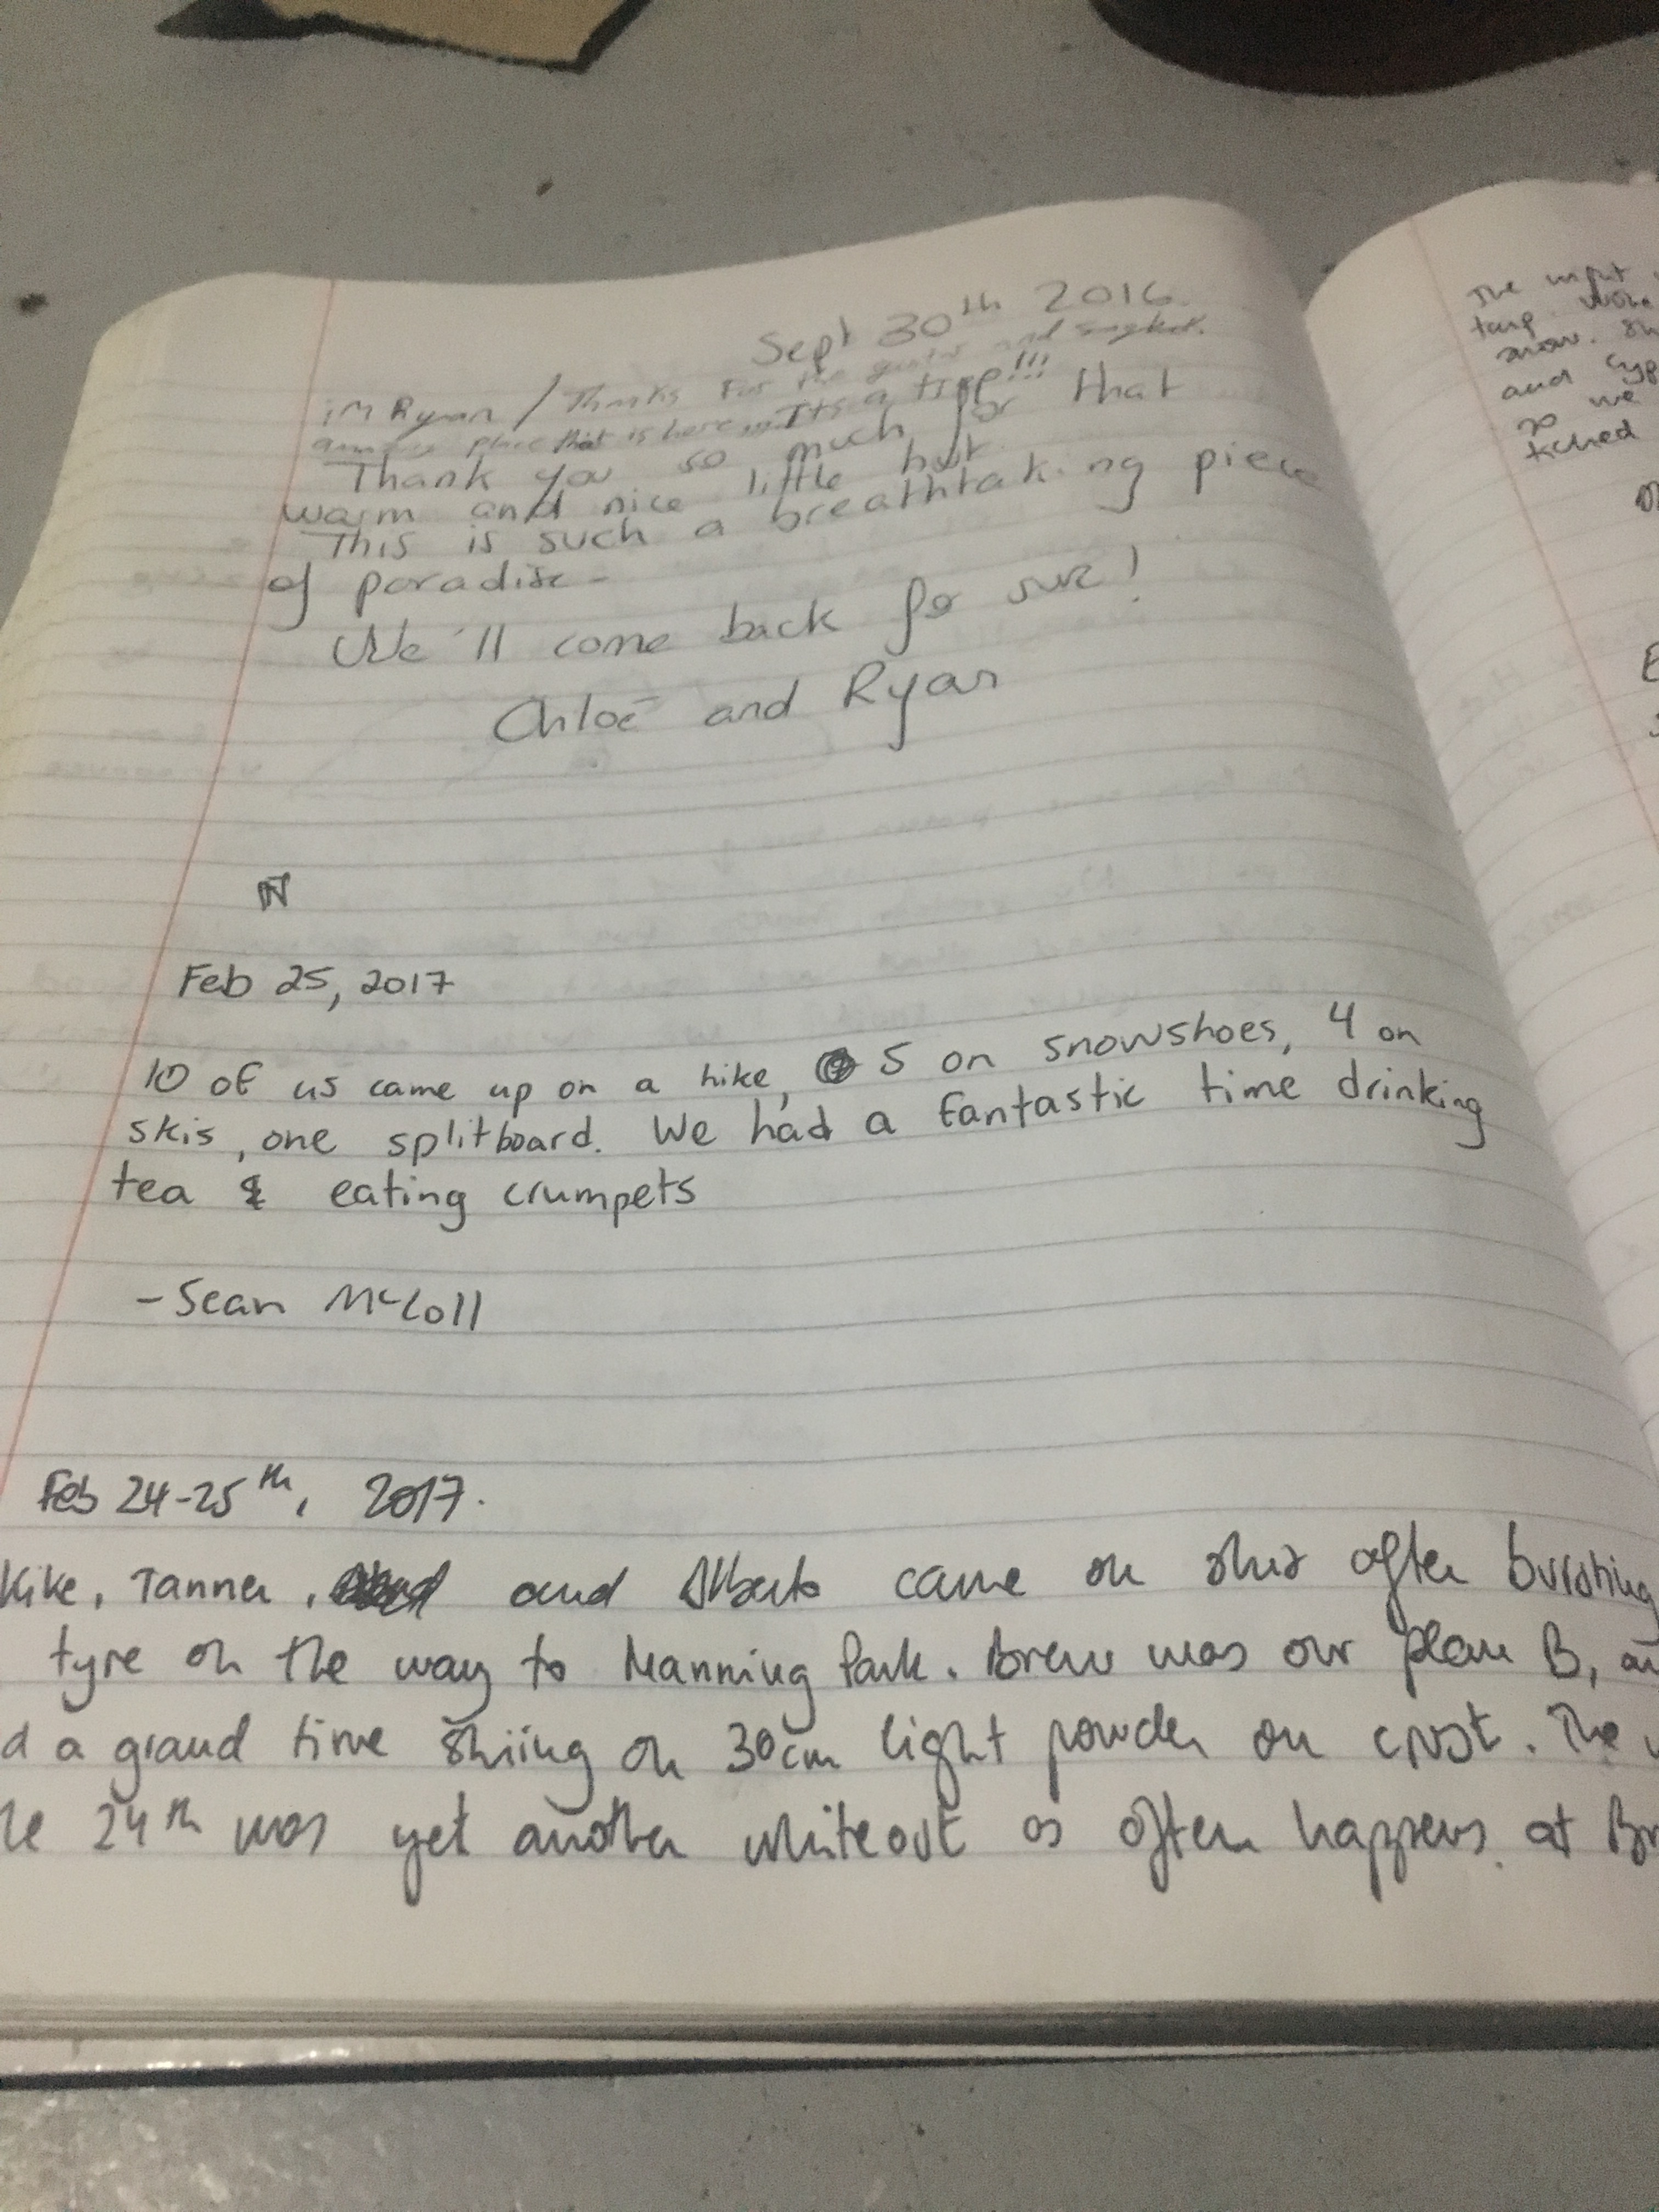 Sept 30th 2016.
iM Ryan / Thanks For the guitar and
place that is here its a tripp!!!
Thank you so much for that
warm and nice little hut.
This is such a breathtaking piece
of paradise-
We'll come back for sure!
Chloé and Ryan
N
Feb 25, 2017
10 of us came up on a hike, 5 on snowshoes, 4 on
skis, one splitboard. We had a fantastic time drinking
tea & eating crumpets
- Sean McColl
Feb 24-25th, 2017.
Kike, Tanner, and Alberto came on after bursting
tyre on the way to Manning Park. Brew was our plan B,
a grand time skiing on 30cm light powder on crust. The
24th was yet another whiteout as often happens at
The
tarp
snow.
and
so we